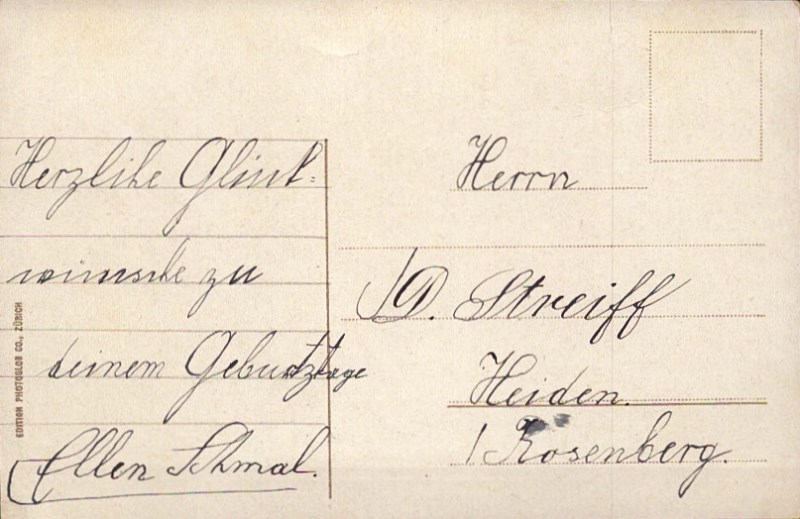 Herzlihe Glück-
wünsche zu
deinem Geburtztage
Ellen Schmal.
Herrn
D. Streiff
Heiden.
Rosenberg.
EDITION PHOTOGLOB CO., ZÜRICH